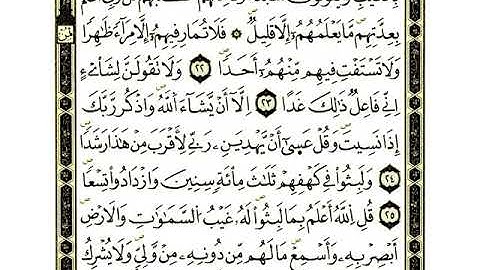 بِعِدَّتِهِم مَّا يَعْلَمُهُمْ إِلَّا قَلِيلٌ ۞ فَلَا تُمَارِ فِيهِمْ إِلَّا مِرَآءً ظَٰهِرًا
وَلَا تَسْتَفْتِ فِيهِم مِّنْهُمْ أَحَدًا ٢٢ وَلَا تَقُولَنَّ لِشَاْىْءٍ
اِنِّى فَاعِلٌ ذَٰلِكَ غَدًا ٢٣ اِلَّا أَنْ يَّشَآءَ اَللَّهُ وَاذْكُر رَّبَّكَ
إِذَا نَسِيتَ وَقُلْ عَسَىٰٓ أَنْ يَّهْدِيَنِۦ رَبِّى لِأَقْرَبَ مِنْ هَٰذَا رَشَدًا
٢٤ وَلَبِثُوا۟ فِى كَهْفِهِمْ ثَلَٰثَ مِاْئَةٍ سِنِينَ وَازْدَادُوا۟ تِسْعًا
٢٥ قُلِ اِللَّهُ أَعْلَمُ بِمَا لَبِثُوا۟ لَهُۥ غَيْبُ السَّمَٰوَٰتِ وَالْأَرْضِ
أَبْصِرْ بِهِۦ وَأَسْمِعْ مَا لَهُم مِّن دُونِهِۦ مِنْ وَّلِىٍّ وَلَا يُشْرِكُ